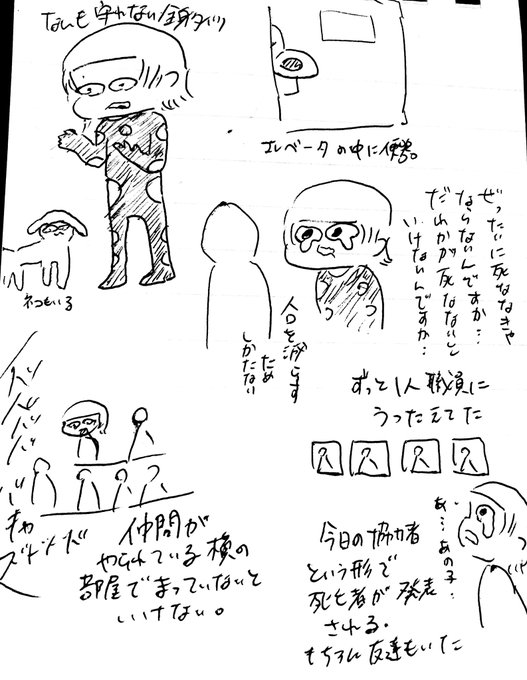 なにも守れない全身タイツ
エレベータの中に便器。
ネコもいる
ぜったいに死ななきゃ
ならないんですか…
だれかが死なないと
いけないんですか…
人口を減らす
ため
しかたない
ずっと1人職員に
うったえてた
仲間が
やられている横の
部屋でまっていないと
いけない。
あ…あの子…
今日の協力者
という形で
死亡者が発表
される。
もちろん友達もいた